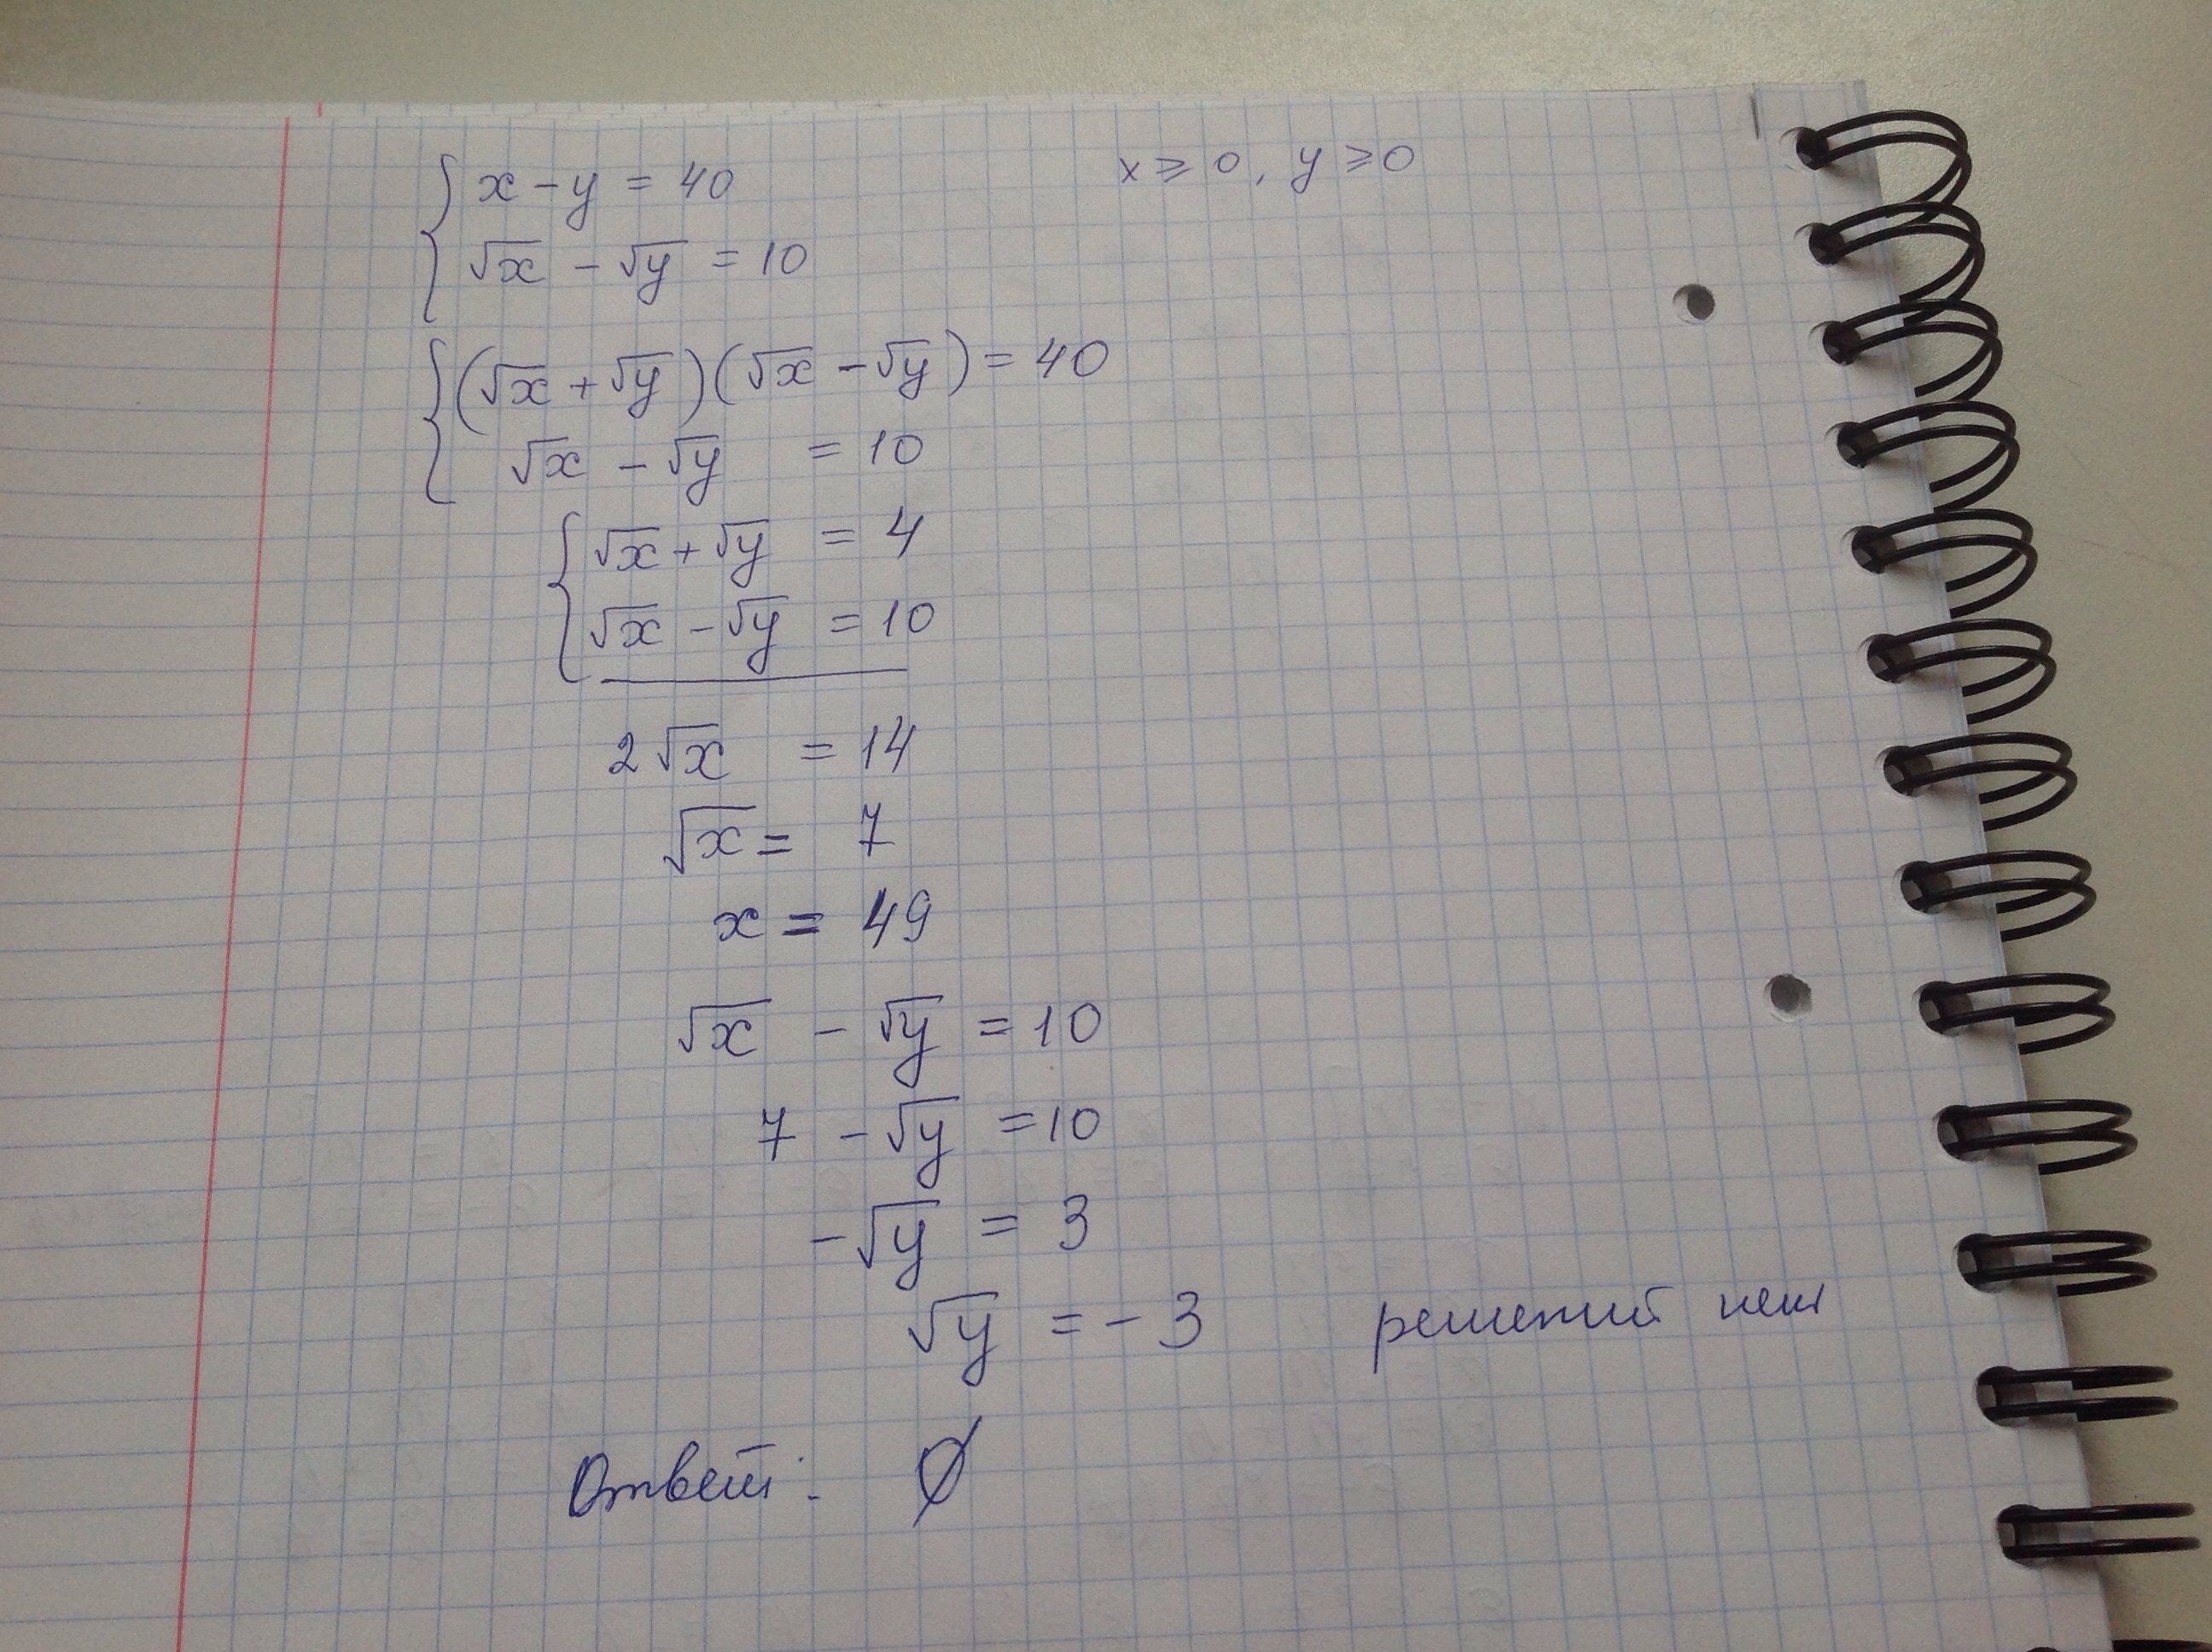 x - y = 40 x ≥ 0, y ≥ 0
√x - √y = 10
(√x + √y)(√x - √y) = 40
√x - √y = 10
√x + √y = 4
√x - √y = 10
2√x = 14
√x = 7
x = 49
√x - √y = 10
7 - √y = 10
-√y = 3
√y = -3 решений нет
Ответ: ∅